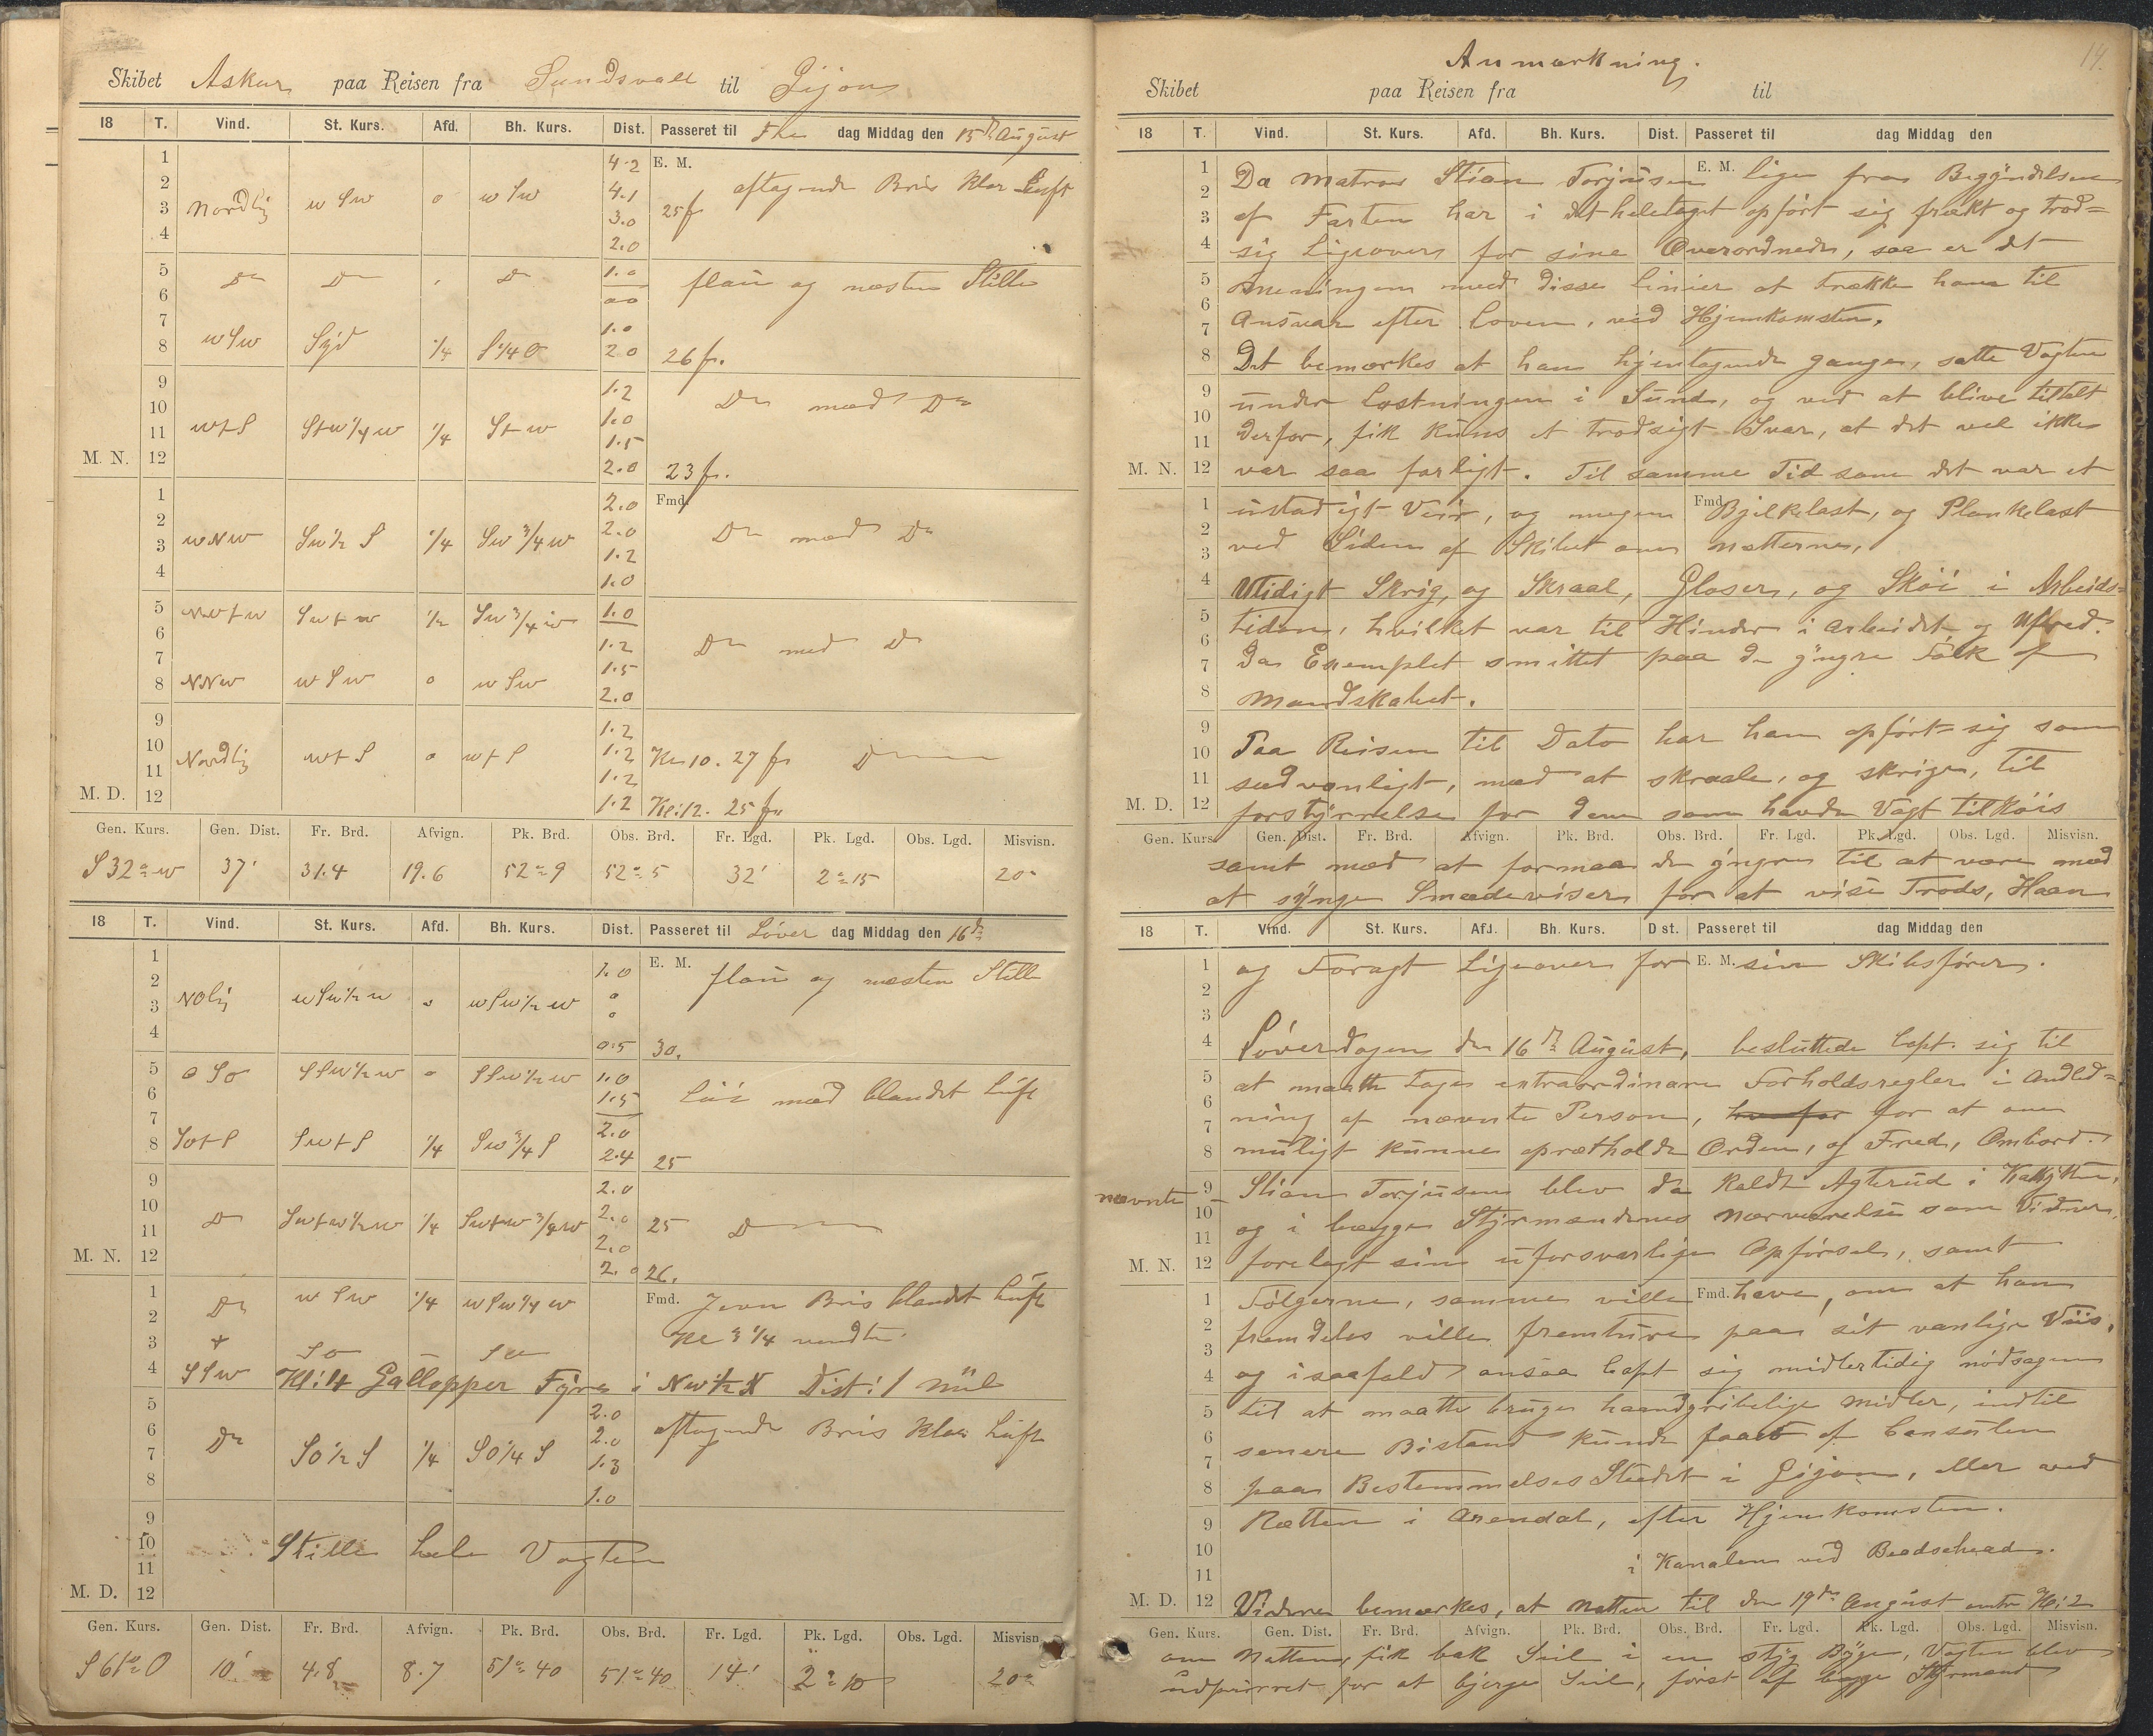 Skibet Askur paa Reisen fra Sundsvall til Gijon
18 T. Vind. St. Kurs. Afd. Bh. Kurs. Dist. Passeret til Fre dag Middag den 15de August
1 4.2 E. M.
2 4.1 aftagende Bris klar Luft
3 Nordlig w Sw o w Sw 3.0 25 f
4 2.0
5 Do Do Do 1.0 flau og næsten Stille
6 00
7 1.0
8 w Sw Syd 1/4 S 1/4 O 2.0 26 fv.
9 1.2
10 1.0 Do med Do
11 w t S St w 1/4 w 1/4 St w 1.5
M. N. 12 2.0 23 fv.
1 2.0 Fmd.
2 2.0
3 w N w Sw 1/2 S 1/4 Sw 3/4 w 1.2 Do med Do
4 1.0
5 Nw t w Sw t w 1/2 Sw 3/4 w 1.0
6 1.2 Do med Do
7 1.5
8 NNw w Sw o w Sw 2.0
9 1.2
10 Nordlig w t S o w t S 1.2 Kl 10. 27 fv Do
11 1.2
M. D. 12 1.2 Kl: 12. 25 fv
Gen. Kurs. Gen. Dist. Fr. Brd. Afvign. Pk. Brd. Obs. Brd. Fr. Lgd. Pk. Lgd. Obs. Lgd. Misvisn.
S 32° w 37' 31.4 19.6 52° 9 52° 5 32' 2° 15 20°
18 T. Vind. St. Kurs. Afd. Bh. Kurs. Dist. Passeret til Löver dag Middag den 16de
1 1.0 E. M. flau og næsten Stille
2 o
3 NOlig w Sw 1/2 w o w Sw 1/2 w o
4 0.5 30.
5 O So S Sw 1/2 w o S Sw 1/2 w 1.0
6 1.5 med blandet Luft
7 2.0
8 So t S Sw t S 1/4 Sw 3/4 S 2.4 25
9 2.0
10 Do Sw t w 1/2 w 1/4 Sw t w 3/4 w 2.0 25 Do
11 2.0
M. N. 12 2.0 26.
1 Do w Sw 1/4 w Sw 1/4 w Fmd. Jevn Bris blandet Luft
2 Kl 3 1/4 vendte
3 t So
4 S Sw Kl: 4 Gallopper Fyr i Nw 1/2 N Dist: 1 Mil
5 2.0
6 Do 2.0 aftagende Bris klar Luft
7 So 1/2 S 1/4 SO 1/4 S 1.3
8 1.0
9
10 Stille hele Vagten
11
M. D. 12
Gen. Kurs. Gen. Dist. Fr. Brd. Afvign. Pk. Brd. Obs. Brd. Fr. Lgd. Pk. Lgd. Obs. Lgd. Misvisn.
S 61° O 10' 4.8 8.7 51° 40 51° 40 14' 2° 10 20°
14.
Anmærkning.
Skibet paa Reisen fra til
18 T. Vind. St. Kurs. Afd. Bh. Kurs. Dist. Passeret til dag Middag den
1 Da Matros Stian Torjusen E. M. lige fra Begyndelsen
2 af Farten har i det heletaget opfört sig frækt og trod=
3 4 sig Ligeovers for sine Overordnede, saa er det
5 Meningen med disse linier at trække ham til
6 7 Ansvar efter loven, ved Hjemkomsten.
8 Det bemærkes at han hjentagende ganger, satte Vagten
9 under Lastningen i Sund, og ved at blive tiltalt
10 11 derfor, fik kuns et trodsigt Svar, at det vel ikke
M. N. 12 var saa farligt. Til samme Tid som det var et
1 ustadigt Veir, og megen Fmd. Bjelkelast, og Plankelast
2 3 ved Siden af Skibet om Nætterne,
4 Utidigt Skrig, og Skraal, Gloser, og Sköi i Arbeids=
5 tiden, hvilket var til Hinder i Arbeidet og Ufred.
6 7 Da Exemplet smittet paa de yngre Folk af
8 Mandskabet.
9 Paa Reisen til Dato har han opfört sig som
10 11 sædvanligt, med at skraale, og skrige, til
M. D. 12 forstyrrelse for dem som havde Vagt tilköis
Gen. Kurs. Gen. Dist. Fr. Brd. Afvign. Pk. Brd. Obs. Brd. Fr. Lgd. Pk. Lgd. Obs. Lgd. Misvisn.
samt med at formaa de yngre til at være med
at synge Smædeviser for at vise Trods, Haan
18 T. Vind. St. Kurs. Afd. Bh. Kurs. Dist. Passeret til dag Middag den
1 og Foragt Ligeover for E. M. sin Skibsförer.
2
3
4 Löverdagen den 16de August, besluttede Capt. sig til
5 at maatte tages extraordinære Forholdsregler i Andled=
6 7 ning af nævnte Person, hvorfor for at om
8 muligt kunne opretholde Orden, og Fred, Ombord.
nævnte 9 Stian Torjusen blev da kaldt Agterud i Kahytten,
10 11 og i begge Styrmændenes Nærværelse som Vidner,
M. N. 12 forelagt sin uforsvarlige Opförsel, samt
1 Fölgerne, samme ville Fmd. have, om at han
2 fremdeles ville fremture paa sit vanlige Viis,
3 4 og isaafald ansaa Capt sig midlertidig nödsagen
5 til at maatte bruge haandgribelige Midler, indtil
6 7 senere Bistand kunde faaes af Consulen
8 paa BestemmelsesStedet i Gijon, eller ved
9 Rætten i Arendal, efter Hjemkomsten.
10 11 i Kanalen ved Beachehead.
M. D. 12 Videre bemærkes, at Natten til den 19de August Kl: 2
Gen. Kurs. Gen. Dist. Fr. Brd. Afvign. Pk. Brd. Obs. Brd. Fr. Lgd. Pk. Lgd. Obs. Lgd. Misvisn.
om Natten, fik bak Seil i en styg Byge, Vagten blev
udpurret for at bjerge Seil, först af begge Styrmænd